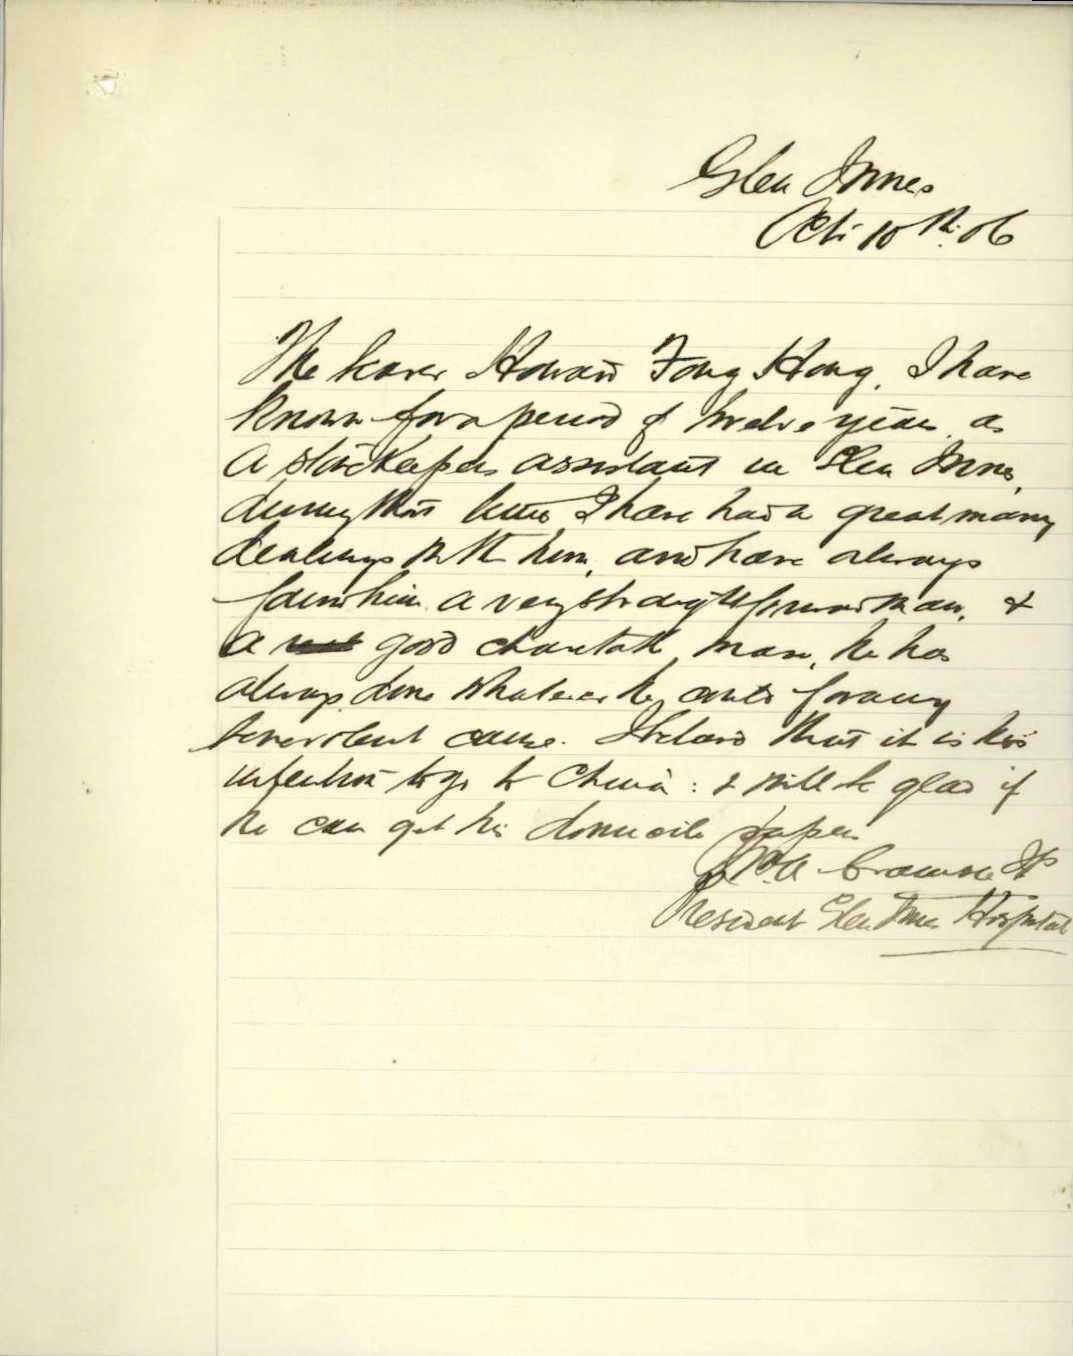 Glen Innes
Oct 10th 06
The bearer Howard Fong Hong, I have
known for a period of twelve years, as
a storekeepers assistant in Glen Innes,
during that time I have had a great many
dealings with him, and have always
found him a very straightforward man, &
a good charitable man, he has
always done whatever he could for any
benevolent cause. I believe that it is his
intention to go to China: & will be glad if
he can get his domicile papers
President Glen Innes Hospital